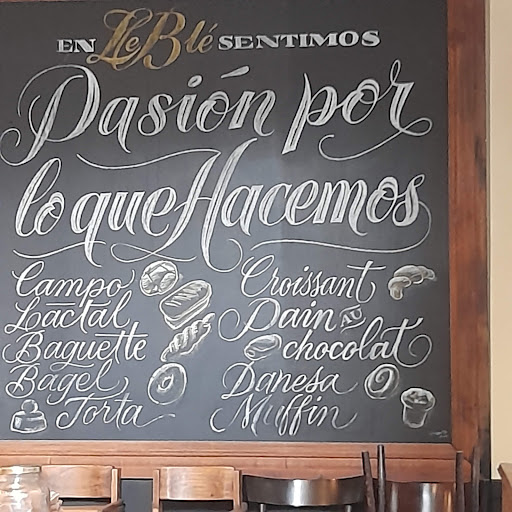 EN Le Blé SENTIMOS
Pasión por
lo que Hacemos
Campo
Lactal
Baguette
Bagel
Torta
Croissant
Pain AU
chocolat
Danesa
Muffin